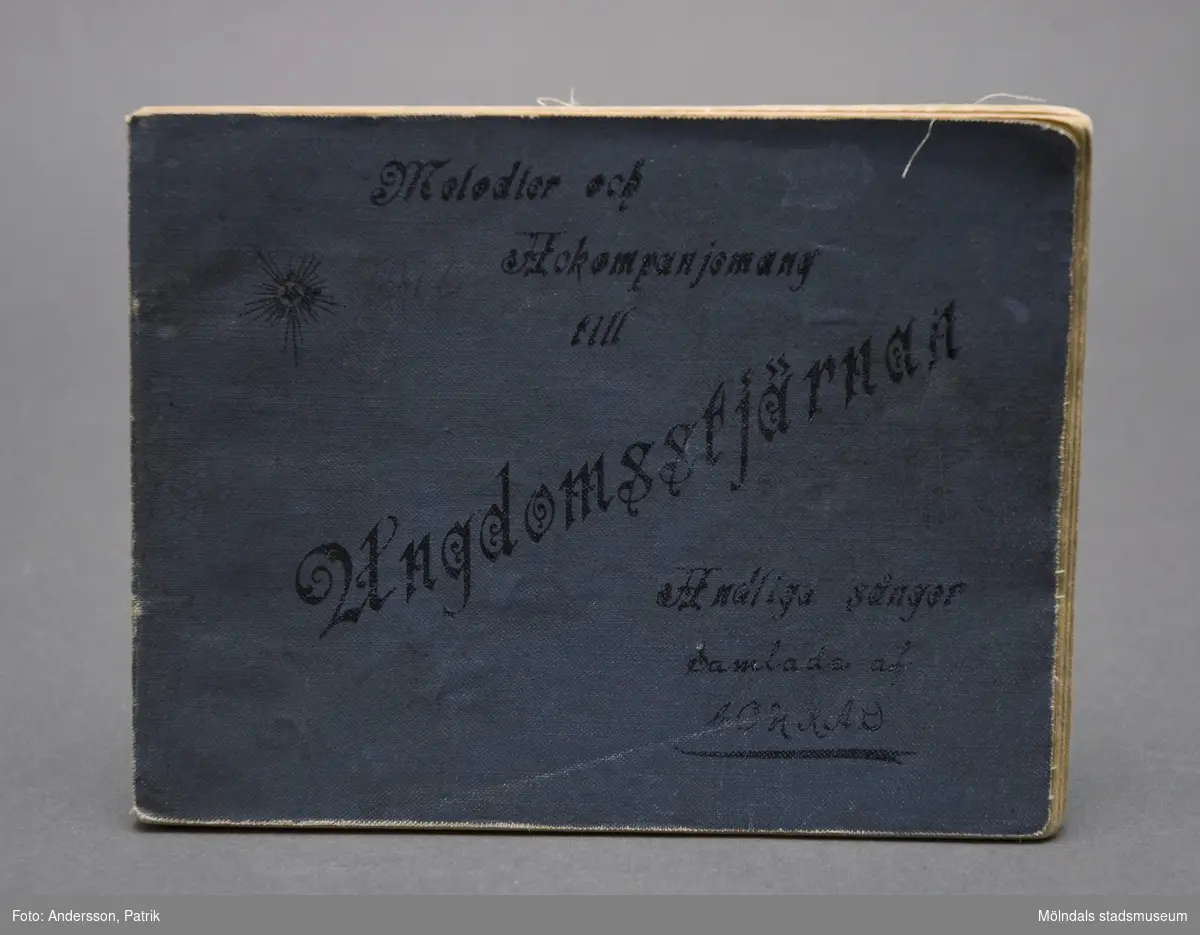 Melodier och
Ackompanjemang
till
Ungdomsstjärnan
Andliga sånger
Samlade af
Foto: Andersson, Patrik
Mölndals stadsmuseum